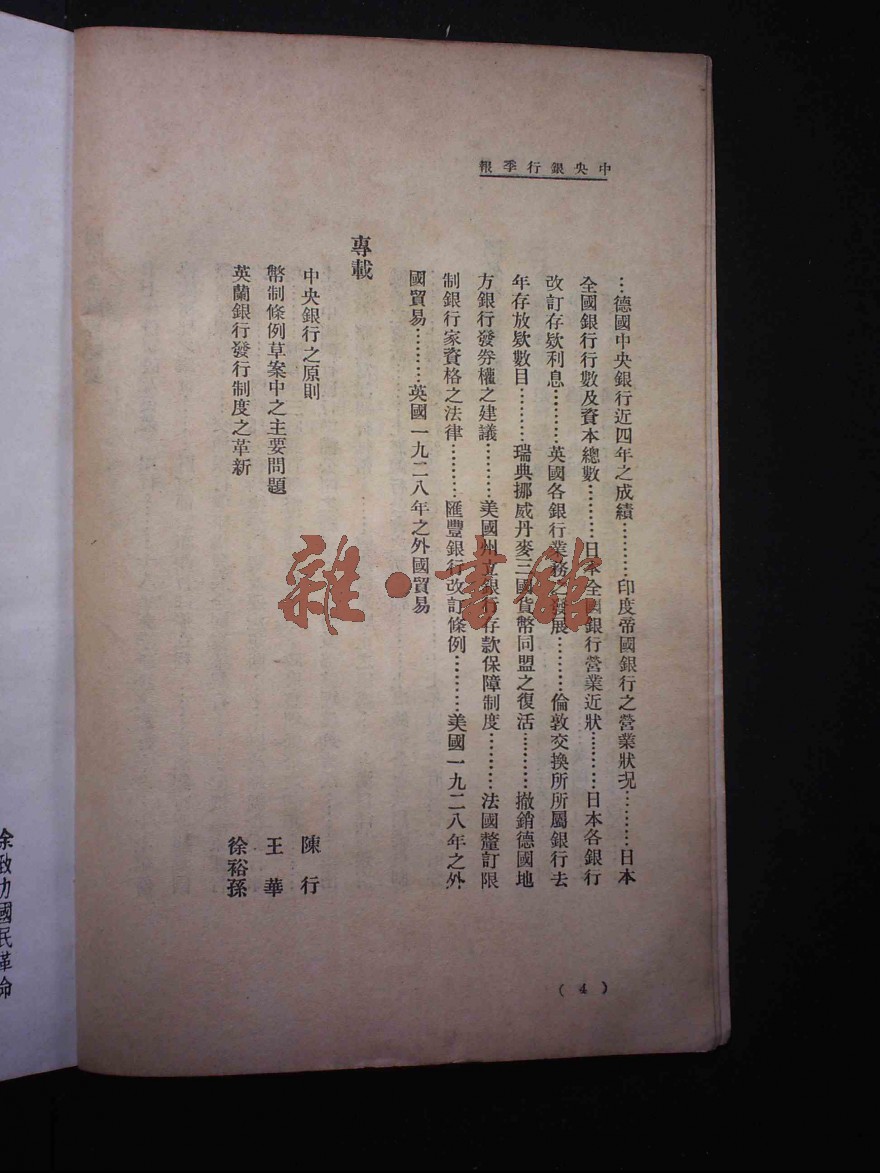 中央銀行季報
…德國中央銀行近四年之成績………印度帝國銀行之營業狀况………日本
全國銀行行數及資本總數………日本全國銀行營業近狀………日本各銀行
改訂存欵利息………英國各銀行業務之發展………倫敦交換所所屬銀行去
年存放欵數目………瑞典挪威丹麥三國貨幣同盟之復活………撤銷德國地
方銀行發券權之建議………美國州立銀行存款保障制度………法國釐訂限
制銀行家資格之法律………匯豐銀行改訂條例………美國一九二八年之外
國貿易………英國一九二八年之外國貿易
專載
中央銀行之原則 陳行
幣制條例草案中之主要問題 王華
英蘭銀行發行制度之革新 徐裕孫
(4)
余致力國民革命
雜·書館